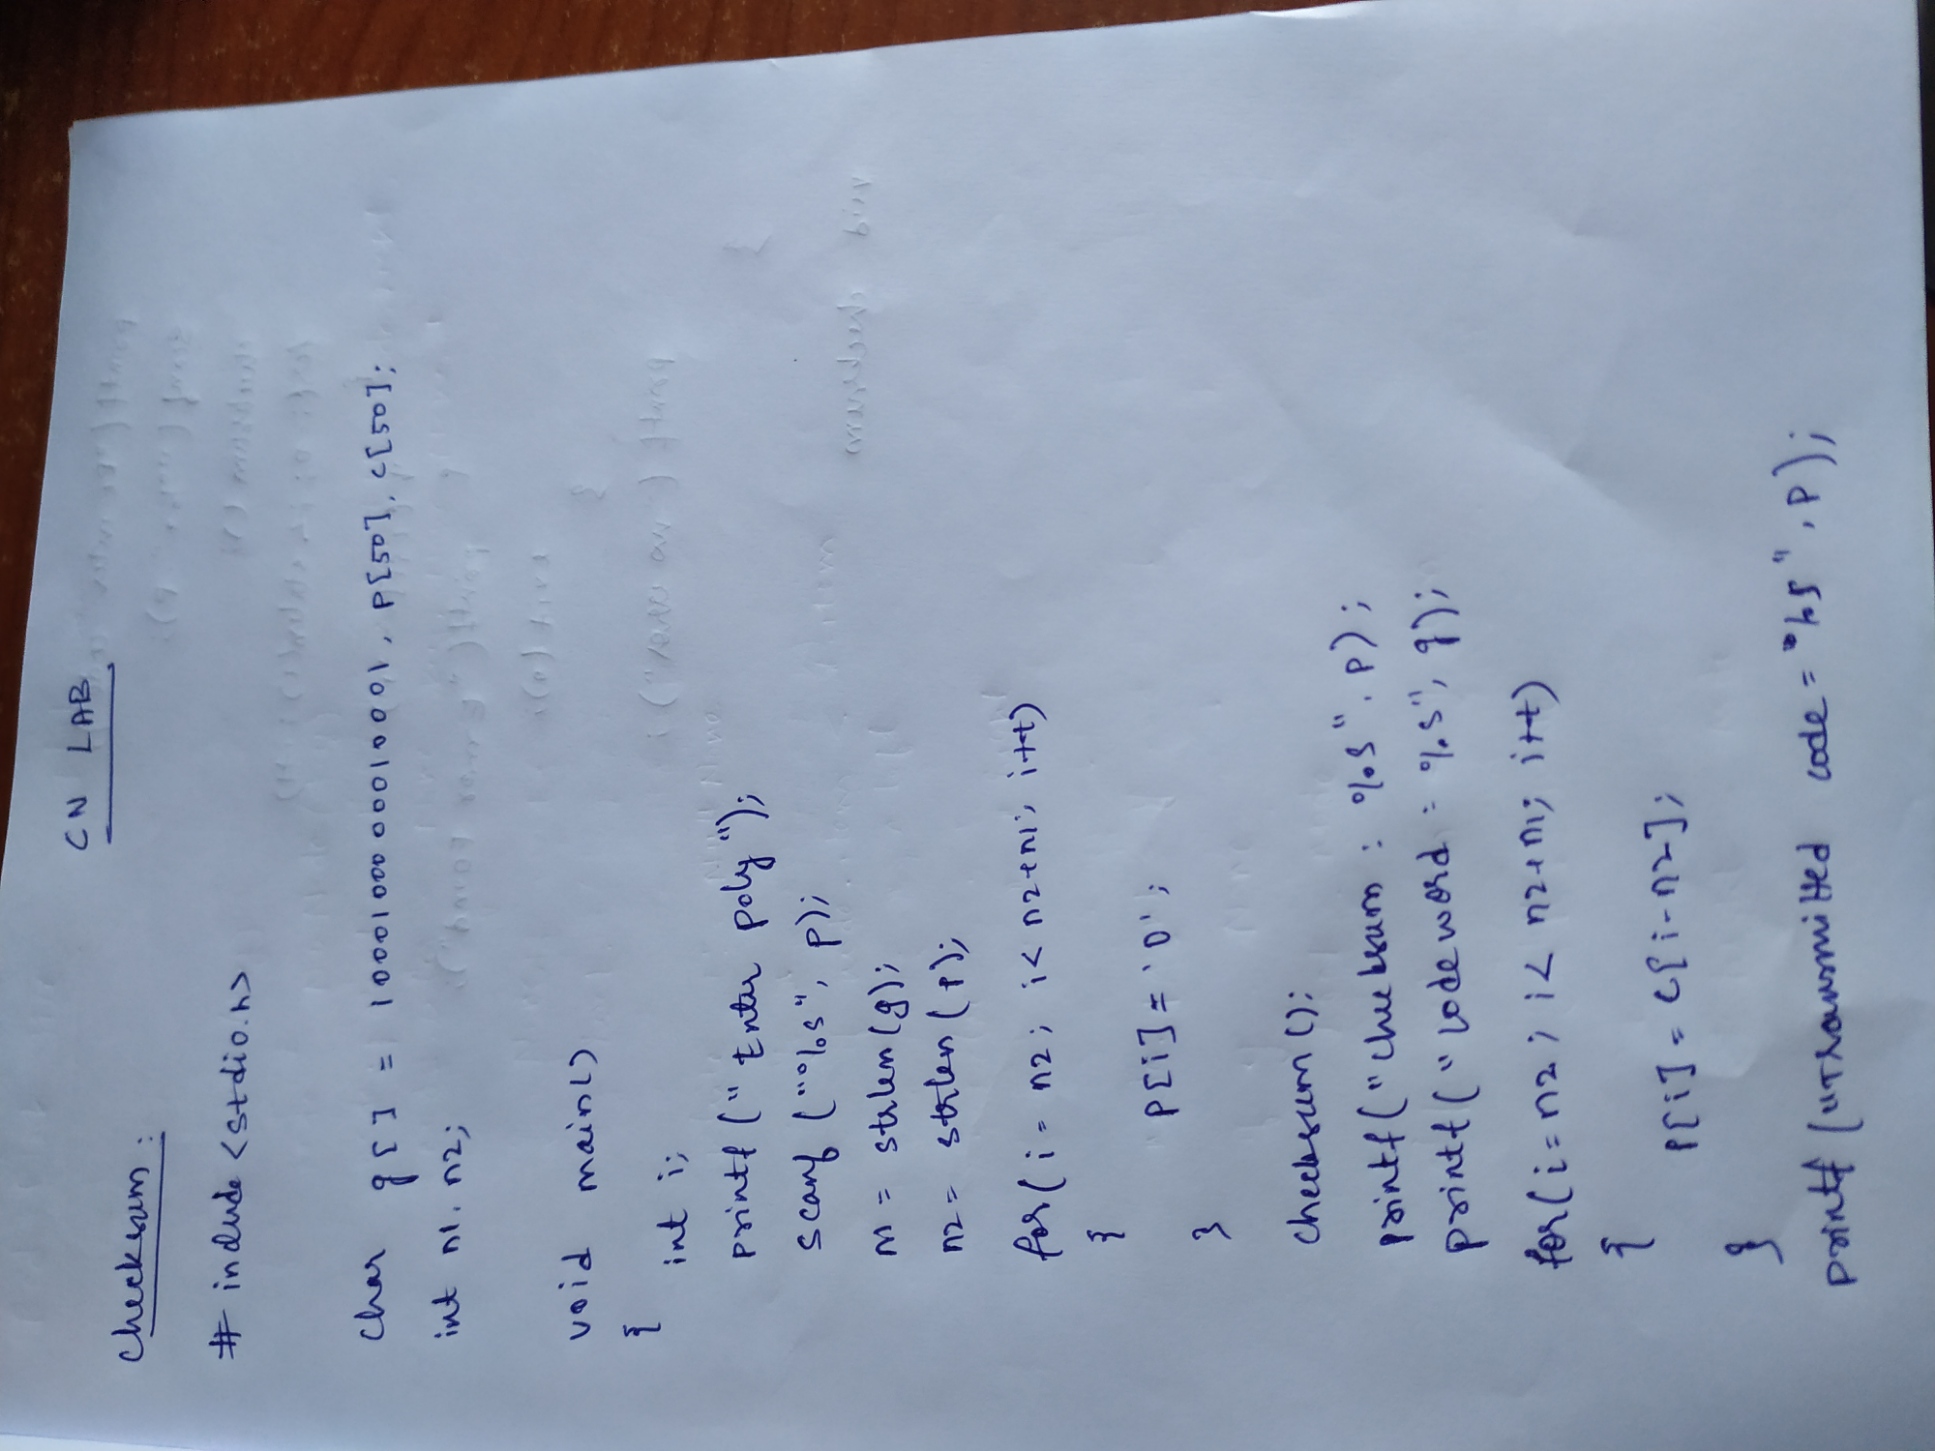 CN LAB
Checksum :
# include <stdio.h>
char g[] = 10001000000010001, P[50], C[50];
int n1, n2;
void main()
{
int i;
printf (" Enter poly ");
scanf ("%s", p);
n1 = strlen(g);
n2 = strlen(p);
for(i = n2; i< n2+n1; i++)
{
P[i] = '0';
}
checksum ();
printf(" checksum : %s", p);
printf(" codeword : %s", g);
for(i=n2; i< n2+n1; i++)
{
P[i] = C[i-n2];
}
printf ("Transmitted code = %s", P);